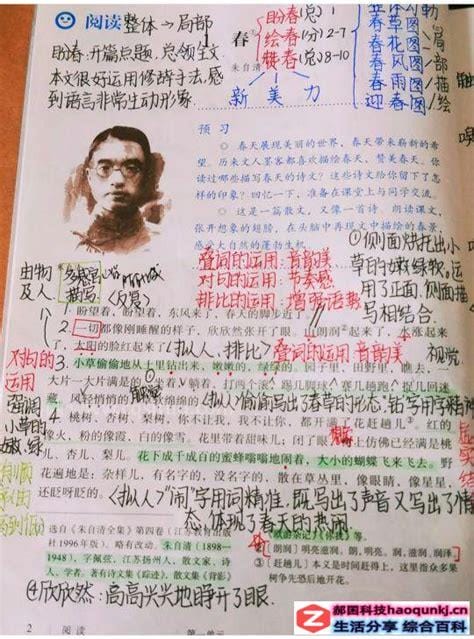 阅读 整体→局部
盼春:开篇点题,总领全文
本文很好运用修辞手法,感
到语言非常生动形象.
春
朱自清
盼春(总)1
绘春(分)2-7
赞春(总)8-10
新 美 力
春草图
春花图
春风图
春雨图
迎春图
预 习
春天展现美丽的世界,春天带来崭新的希
望。历来文人墨客都喜欢描绘春天,赞美春天。你
读过哪些描写春天的诗文?这些诗文给你留下了怎
样的印象?回忆一下,准备在课堂上与同学交流。
这是一篇散文,又像一首诗。朗读课文,
张开想象的翅膀,在头脑中再现文中描绘的春景
大自然的蓬勃生机。
叠词的运用:音韵美
对句的运用:节奏感
排比的运用:增强语势
①侧面烘托出小
草的嫩绿软。运
用了正面,侧面描
写相结合.
由物
及人.
盼望着,盼望着,东风来了,春天的脚步近了
2.一切都像刚睡醒的样子,欣欣然张开了眼。山朗润起来了,水涨起来
了,太阳的脸红起来了。
(拟人、排比)叠词的运用 音韵美
视觉.
对句的
运用
强调
小草的
嫩、绿
3.小草偷偷地从土里钻出来,嫩嫩的,绿绿的。园子里,田野里,瞧去,一
大片一大片满是的。坐着,躺着,打两个滚,踢几脚球,赛几趟跑,捉几回迷
藏。风轻悄悄的,草软绵绵的。
(拟人)"偷偷"写出了春草的形态"钻"字用字精神
4.桃树、杏树、梨树,你不让我,我不让你,都开满了花赶趟儿。红的
像火,粉的像霞,白的像雪。花里带着甜味儿;闭了眼,树上仿佛已经满是
桃儿、杏儿、梨儿。花下成千成百的蜜蜂嗡嗡地闹着,大小的蝴蝶飞来飞去。野
花遍地是:杂样儿,有名字的,没名字的,散在草丛里,像眼睛,像星星,
还眨呀眨的。
(拟人)"闹"字用词精准,既写出了声音又写出了情
态,体现了春天的热闹
选自《朱自清全集》第四卷(江苏教育出版
社1996年版)。略有改动。朱自清(1898—
1948),字佩弦,江苏扬州人,散文家、诗
人、学者。著有诗文集《踪迹》,散文集《背影》
《欧游杂记》《你我》等。
②〔朗润〕明亮滋润。朗,明亮。润,滋润、润泽。
③〔赶趟儿〕本文是时间赶得上,这里指众多果
树争先恐后地开花。
④欣欣然:高高兴兴地睁开了眼.
2 阅读 第一单元
郝困科技haoqunkj.cn
生活分享 综合百科